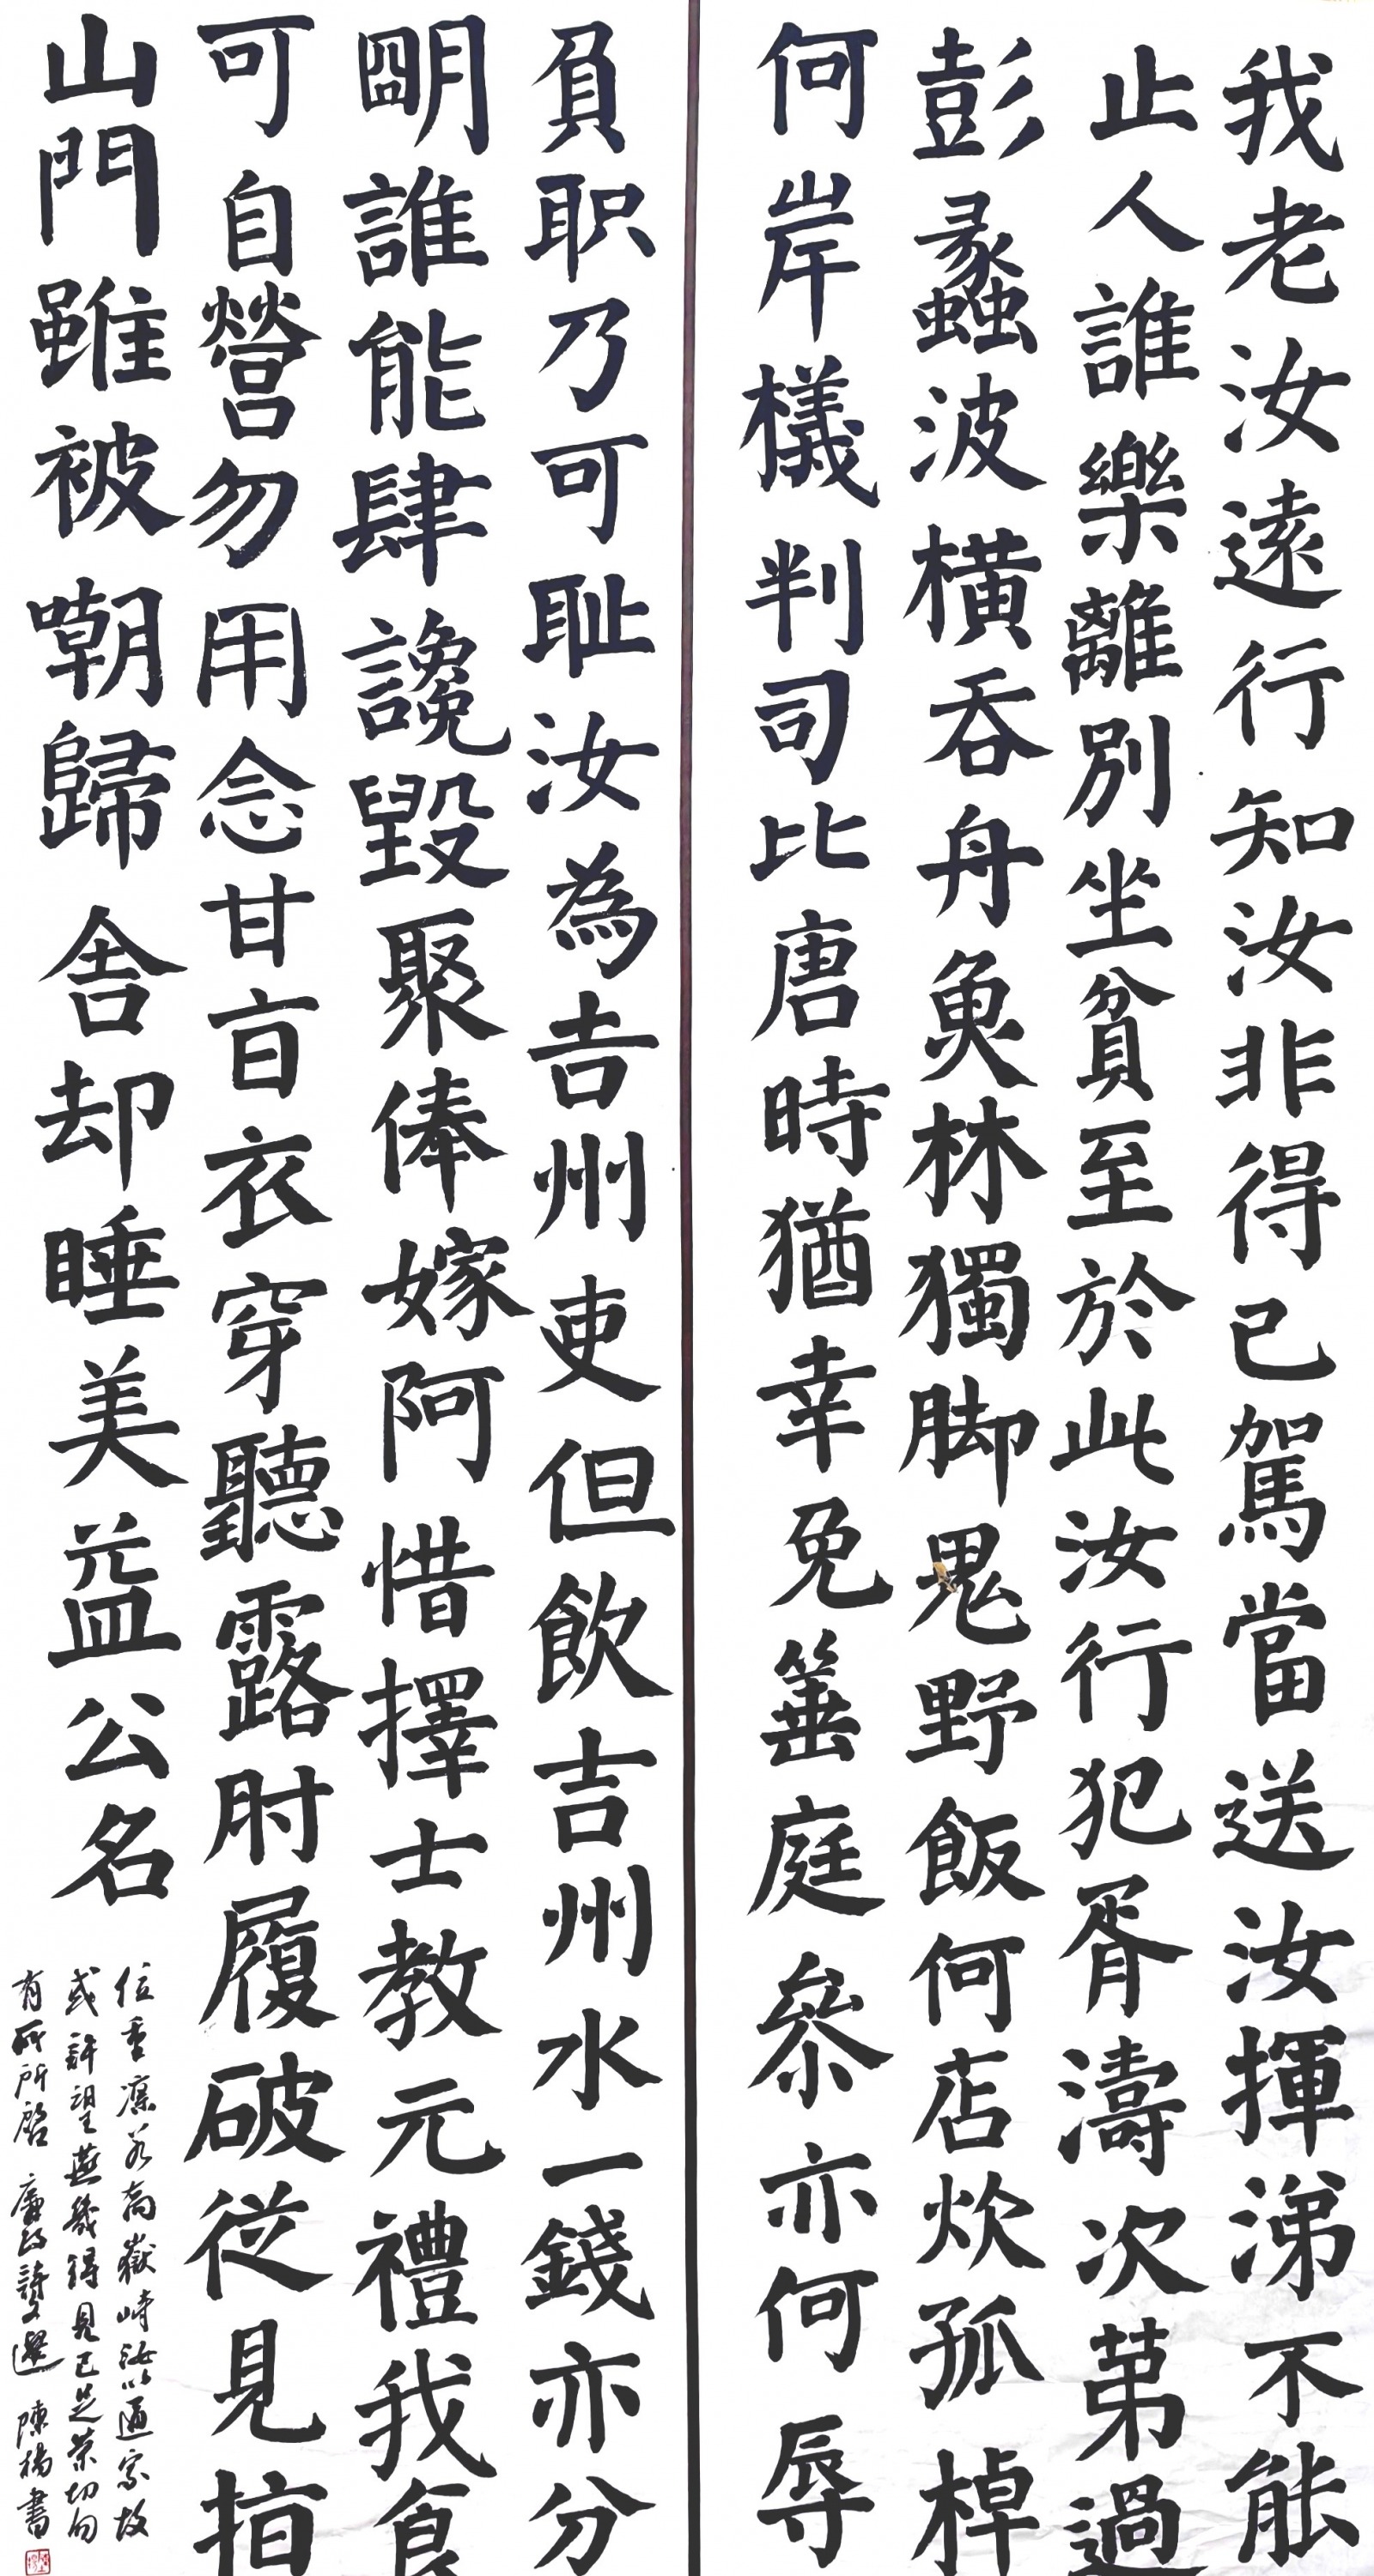 我老汝遠行知汝非得已駕當送汝揮涕不能
止人誰樂離別坐貧至於此汝行犯胥濤次第過
彭蠡波橫吞舟魚林獨脚鬼野飯何店炊孤棹
何岸檥判司比唐時猶幸免箠庭參亦何辱
負职乃可耻汝為吉州吏但飲吉州水一錢亦分
明誰能肆讒毀聚俸嫁阿惜擇士教元禮我食
可自營勿用念甘旨衣穿聽露肘履破從見指
山門雖被嘲歸舍却睡美益公名
位重凜若喬嶽峙汝以通家故
或許望燕幾得見已足榮切勿
有所啓 廉政詩文選 陳楊書